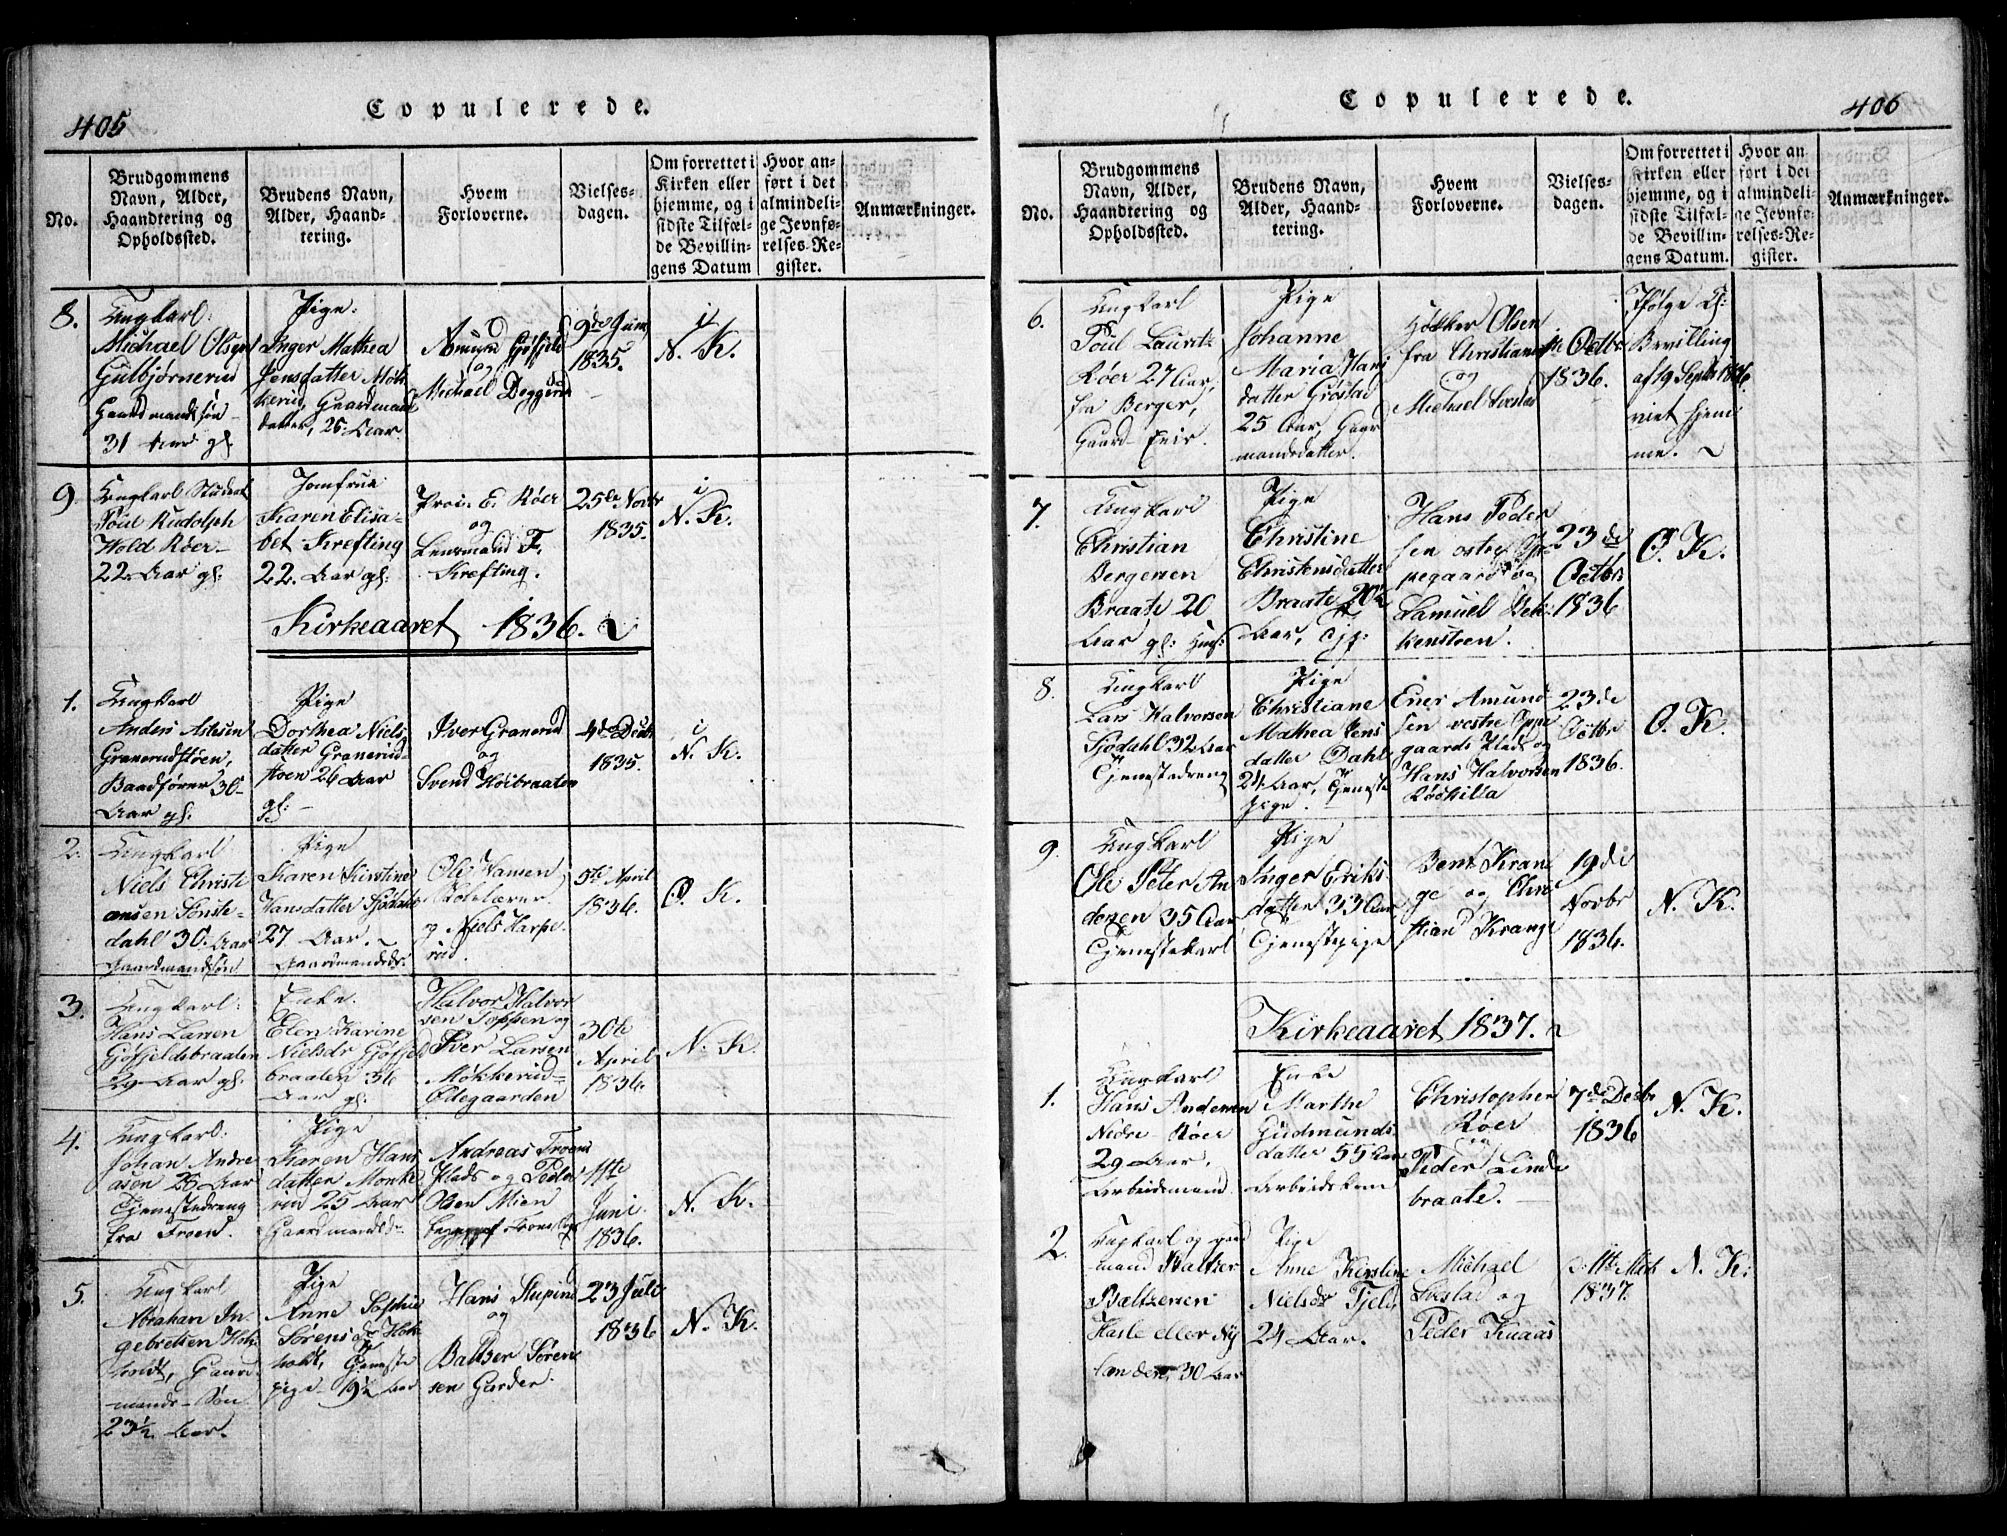 405
Copulerede.
No.
Brudgommens
Navn, Alder,
Haandtering og
Opholdssted.
Brudens Navn,
Alder, Haand-
tering.
Hvem
Forloverne.
Vielses-
dagen.
Om forrettet i
Kirken eller
hjemme, og i
sidste Tilfæl-
de Bevillin-
gens Datum
Hvor an-
ført i det
almindeli-
ge Jevnfø-
relses-Re-
gister.
Anmærkninger.
8.
Ungkarl:
Michael Olsen
Gulbjørnerud
Gaardmandssøn
31 Aar gl.
Pige:
Inger Mathea
Jensdatter Møk-
kerud, Gaardmands
datter, 26 Aar.
Amund Gjøfjeld
og
Michael Deggerud
9de Juni
1835.
i
N. K.
9.
Ungkarl Student
Poul Rudolph
Wold Røer
22 Aar gl.
Jomfrue
Karen Elisa-
bet Krefting
22. Aar gl:
Proc. E. Røer
og
Lensmand F.
Krefting.
25de Novbr
1835.
i
N. K.
Kirkeaaret 1836.
1.
Ungkarl
Anders Aslesen
Granerudstøen,
Baadfører 30
Aar gl.
Pige
Dorthea Niels
datter Granerud-
støen 26 Aar
gl:
Iver Granerud
og
Svend Køibraaten
4de Decbr
1835.
i
N. K.
2.
Ungkarl
Niels Christi
ansen Sønste-
dahl 30. Aar
Gaardmandssøn
Pige
Karen Kirstine
Hansdatter Sjødahl
27 Aar.
Gaardmandsdr.
Ole Hansen
Skolelærer
og Niels Harpe
rud.
5te April
1836.
O. K.
3.
Ungkarl:
Hans Larsen
Gjøfjeldsbraaten
29 Aar gl.
Enke.
Elen Karine
Nielsdr Gjøfjeld
braaten 36
Aar gl.
Halvor Halvor
sen Toppen og
Iver Larsen
Møkkerud-
Ødegaarden
30te
April
1836.
N. K.
4.
Ungkarl:
Johan Andre
asen 28 Aar
Tjenestedreng
fra Troen.
Pige
Karen Hans
datter Monke
rud 25 Aar
Gaardmandsdr
Andreas Troens
Plads og Peder
11te
Juni
1836.
N. K.
5.
Ungkarl
Abraham In
gebretsen Hok-
holdt, Gaard
mands-Søn
23½ Aar.
Pige
Anne Sophie
Sørensdr Hok
holdt, Tjeneste
pige 19½ Aar
Hans Stupine
og
Baltser Søren
sen Garder.
23 Juli
1836
N. K.
Copulerede.
406
No.
Brudgommens
Navn, Alder,
Haandtering og
Opholdssted.
Brudens Navn,
Alder, Haand-
tering.
Hvem
Forloverne.
Vielses-
dagen.
Om forrettet i
Kirken eller
hjemme, og i
sidste Tilfæl-
de Bevillin-
gens Datum.
Hvor an
ført i det
almindeli-
ge Jevnfø-
relses-Re-
gister.
Anmærkninger.
6.
Ungkarl
Poul Lauritz
Røer 27 Aar,
fra Berger,
Gaard-Eier.
Pige
Johanne
Maria Hans
datter Grøstad
25 Aar, Gaar
mandsdatter.
Høkker Olsen
fra Christiania
og
Michael Svestad
Octbr
1836.
Ifølge
Bevilling
af 19 Septbr 1836
viet hjem
me.
7.
Ungkarl
Christian
Bergersen
Braate 20
Aar gl:
Pige
Christine
Christensdatter
Braate 20½
Aar,
Hans Peder
sen østre Op
pegaard og
Samuel Bek
kenstoen.
23de
Octbr
1836
O. K.
8.
Ungkarl
Lars Halvorsen
Sjødahl 32 Aar
Tjenestedreng
Pige
Christiane
Mathea Jens
datter Dahl
24 Aar, Tjeneste
pige.
Erier Amund
sen vestre Oppe
gaards Plads og
Hans Halvorsen
Roskilla
23de
Octbr
1836.
O. K.
9.
Ungkarl
Ole Peter An
dersen 35 Aar
Tjenestekarl
Pige
Inger Eriks
datter 33 Aar,
Tjenestepige
Bent Kran
ge og Chri
stian Krange
19de
Novbr
1836.
N. K.
Kirkeaaret 1837.
1.
Ungkarl
Hans Andersen
Nedre Røer
29 Aar.
Arbeidsmand
Enke
Marthe
Gudmunds
datter 55 Aar
Christopher
Røer
og
Peder Linde
braate.
7de Decbr
1836
N. K.
2.
Ungkarl og gaard
mand Baltzer
Baltzersen
Hasle eller Ny
landet, 30 Aar
Pige
Anne Kirstine
Nielsdr Fjeld
24 Aar.
Michael
Svestad og
Peder Knaas
1837.
N. K: